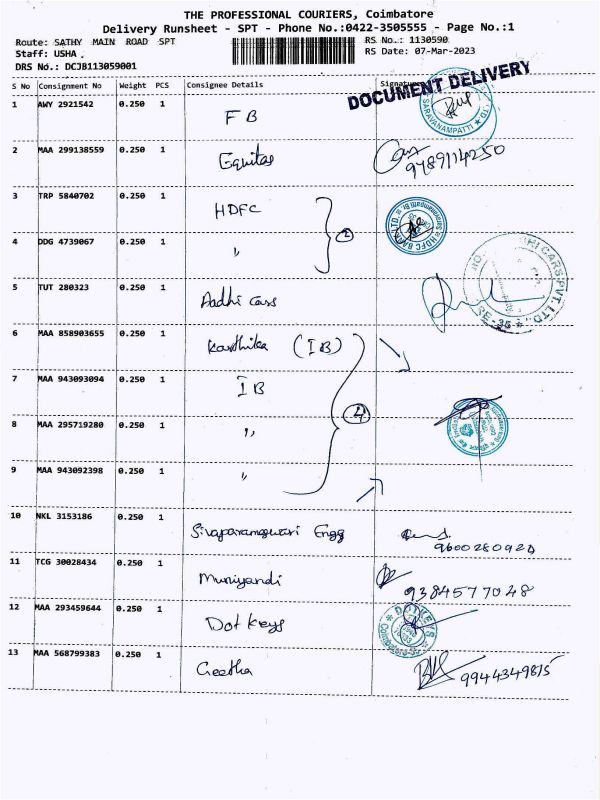 THE PROFESSIONAL COURIERS, Coimbatore
Delivery Runsheet - SPT - Phone No.:0422-3505555 - Page No.:1
Route: SATHY MAIN ROAD SPT RS No.: 1130590
Staff: USHA RS Date: 07-Mar-2023
DRS No.: DCJB113059001
S No Consignment No Weight PCS Consignee Details Signature
DOCUMENT DELIVERY
1 AWY 2921542 0.250 1 FB
SARAVANAMPATTI
2 MAA 299138559 0.250 1 Equitas 9789114250
3 TRP 5840702 0.250 1 HDFC
2
HDFC BANK
4 DDG 4739067 0.250 1 "
5 TUT 280323 0.250 1 Aadhi cars
CARS PVT. LTD.
SE-35
6 MAA 858903655 0.250 1 Karthika (IB)
7 MAA 943093094 0.250 1 IB
4
8 MAA 295719280 0.250 1 "
9 MAA 943092398 0.250 1 "
10 NKL 3153186 0.250 1 Sivaparameswari Engg 9600280920
11 TCG 30028434 0.250 1 Muniyandi 9384577048
12 MAA 293459644 0.250 1 Dot Keys
DOTKEY'S
13 MAA 568799383 0.250 1 Geetha 9944349815